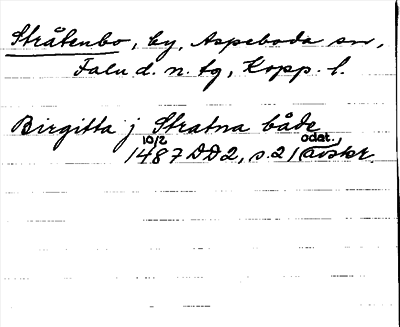 Stråtenbo, by, Aspeboda sn,
Falu d. n. tg, Kopp. l.
Birgitta j Stratna både
10/2 odat.,
1487 DD2, s. 21 avskr.